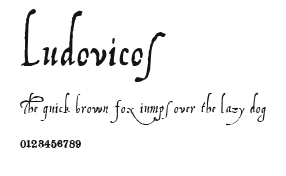 Ludovicos
The quick brown fox iumps over the lazy dog
0123456789